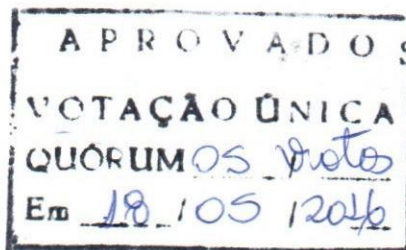 APROVADOS
VOTAÇÃO ÚNICA
QUÓRUM 05 votos
Em 18 / 05 / 2016